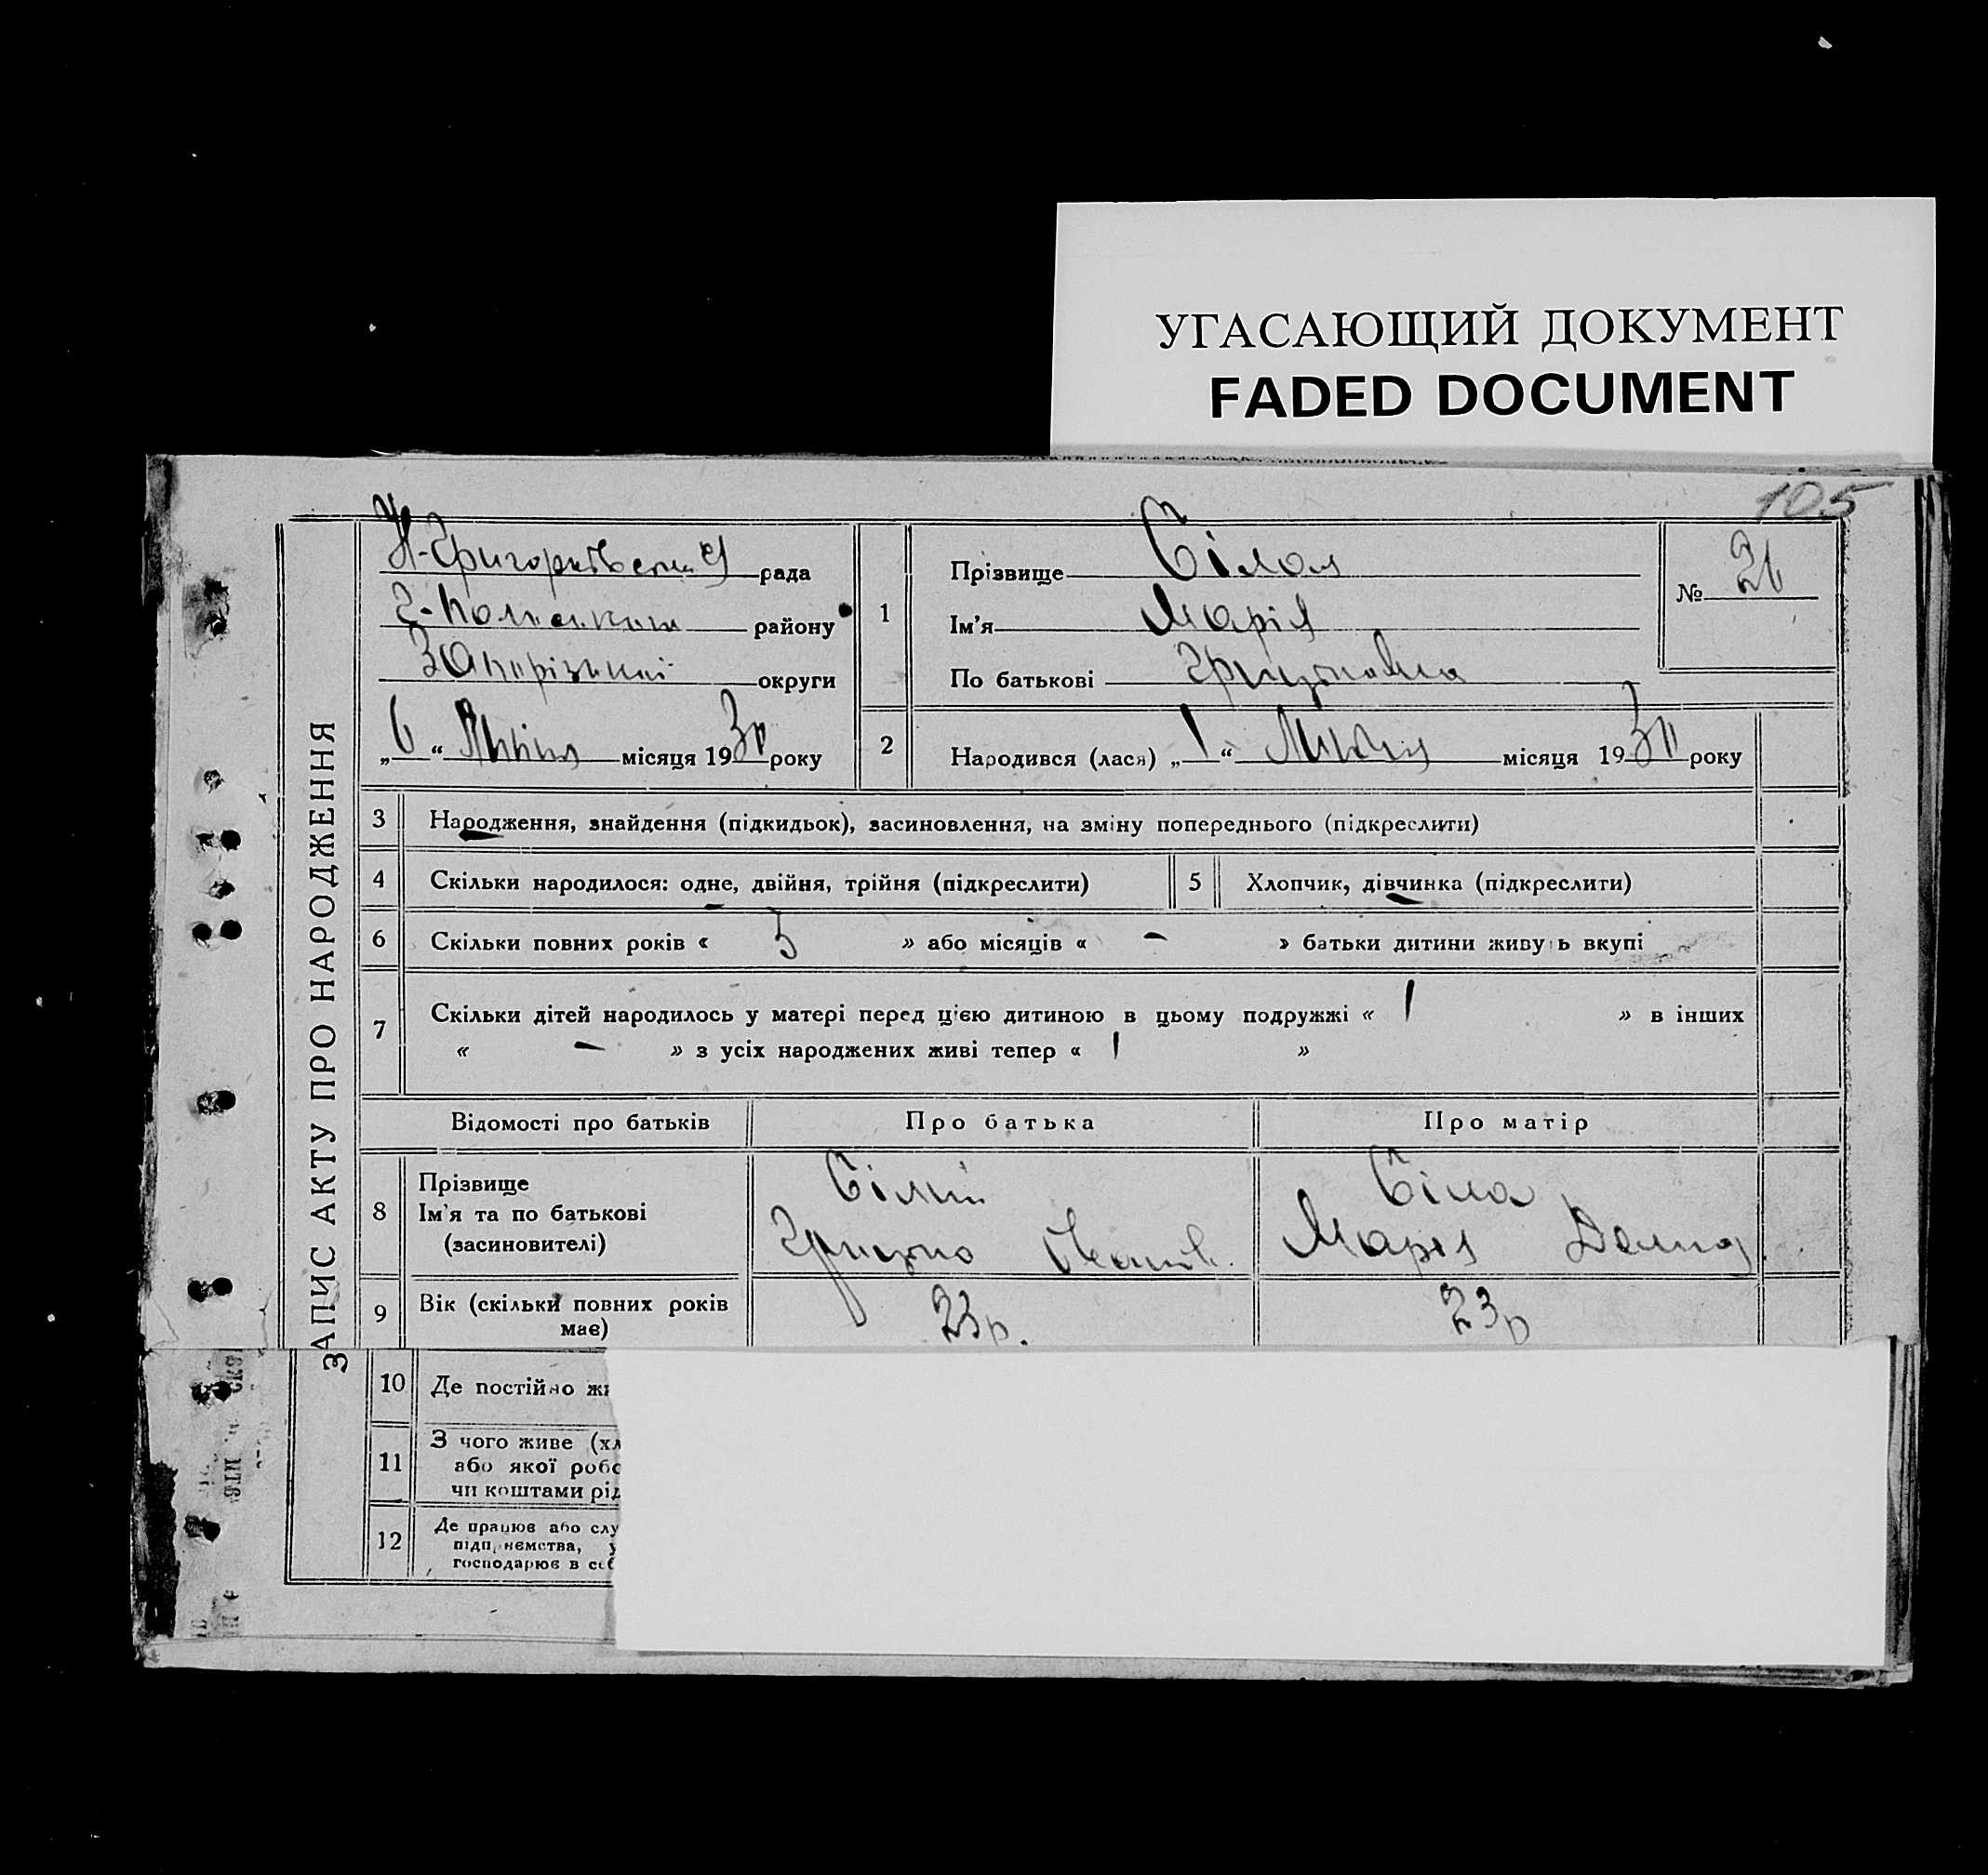 УГАСАЮЩИЙ ДОКУМЕНТ
FADED DOCUMENT
105
ЗАПИС АКТУ ПРО НАРОДЖЕННЯ
рада
району
Запорізької округи
„6“ місяця 1930 року
1
Прізвище Білая
Ім'я Марія
По батькові Грицьковна
№ 26
2
Народився (лася) „1“ місяця 1930 року
3 Народження, знайдення (підкидьок), засиновлення, на зміну попереднього (підкреслити)
4 Скільки народилося: одне, двійня, трійня (підкреслити)
5 Хлопчик, дівчинка (підкреслити)
6 Скільки повних років « 5 » або місяців « - » батьки дитини живуть вкупі
7 Скільки дітей народилось у матері перед цією дитиною в цьому подружжі « 1 » в інших
« - » з усіх народжених живі тепер « 1 »
Відомості про батьків Про батька Про матір
8
Прізвище Білий Біла
Ім'я та по батькові Грицько Іванов. Марія
(засиновителі)
9 Вік (скільки повних років має) 23р. 23р
10 Де постійно жи
11 З чого живе (хл
або якої робо
чи коштами рід
12 Де працює або слу
підприємства, у
господарює в себ